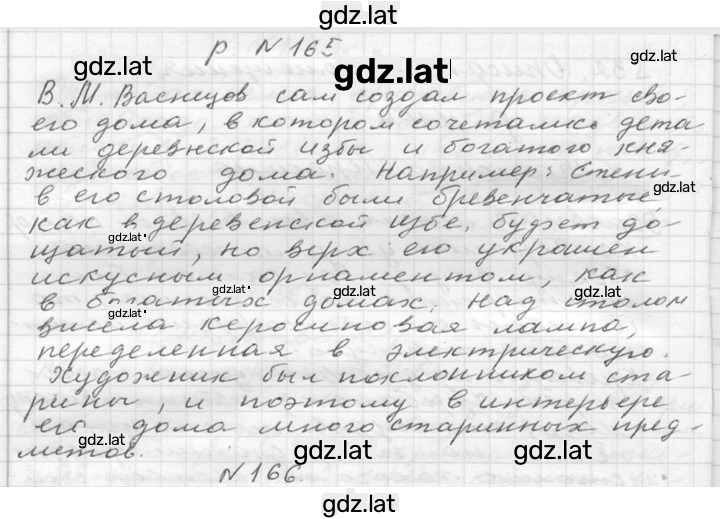 gdz.lat
р N 165
gdz.lat
gdz.lat
gdz.lat
В. М. Васнецов сам создал проект сво-
его дома, в котором сочетались дета
ли деревнской избы и богатого кня-
жеского дома. Например: Стены
gdz.lat
в его столовой были бревенчатые,
как в деревенской избе, буфет до-
gdz.lat
щатый, но верх его украшен
искусным орнаментом, как
gdz.lat
gdz.lat
gdz.lat
в богатых домах. Над столом
gdz.lat
висела керосиновая лампа,
переделенная в электрическую.
Художник был поклонником ста-
рины, и поэтому в интерьере
его дома много старинных пред-
gdz.lat
gdz.lat
gdz.lat
метов.
N 166.
gdz.lat